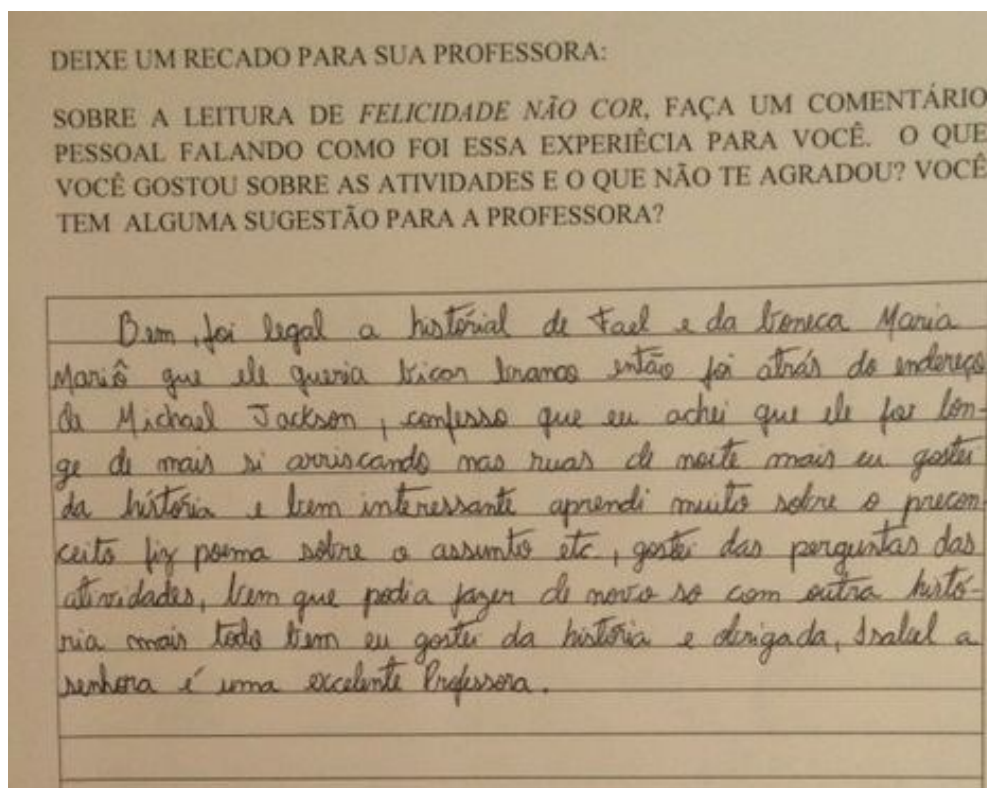 DEIXE UM RECADO PARA SUA PROFESSORA:
SOBRE A LEITURA DE FELICIDADE NÃO COR, FAÇA UM COMENTÁRIO
PESSOAL FALANDO COMO FOI ESSA EXPERIÊCIA PARA VOCÊ. O QUE
VOCÊ GOSTOU SOBRE AS ATIVIDADES E O QUE NÃO TE AGRADOU? VOCÊ
TEM ALGUMA SUGESTÃO PARA A PROFESSORA?
Bem, foi legal a historial de Fael e da boneca Maria
Mariô que ele queria bicar branco então foi atrás do endereço
de Michael Jackson, confesso que eu achei que ele foi lon-
ge de mais si arriscando nas ruas de noite mais eu gostei
da história e bem interessante aprendi muito sobre o precon-
ceito fiz poema sobre o assunto etc, gostei das perguntas das
atividades, bem que podia fazer de novo so com outra histó-
ria mais todo bem eu gostei da história e obrigada, Isabel a
senhora é uma excelente Professora.